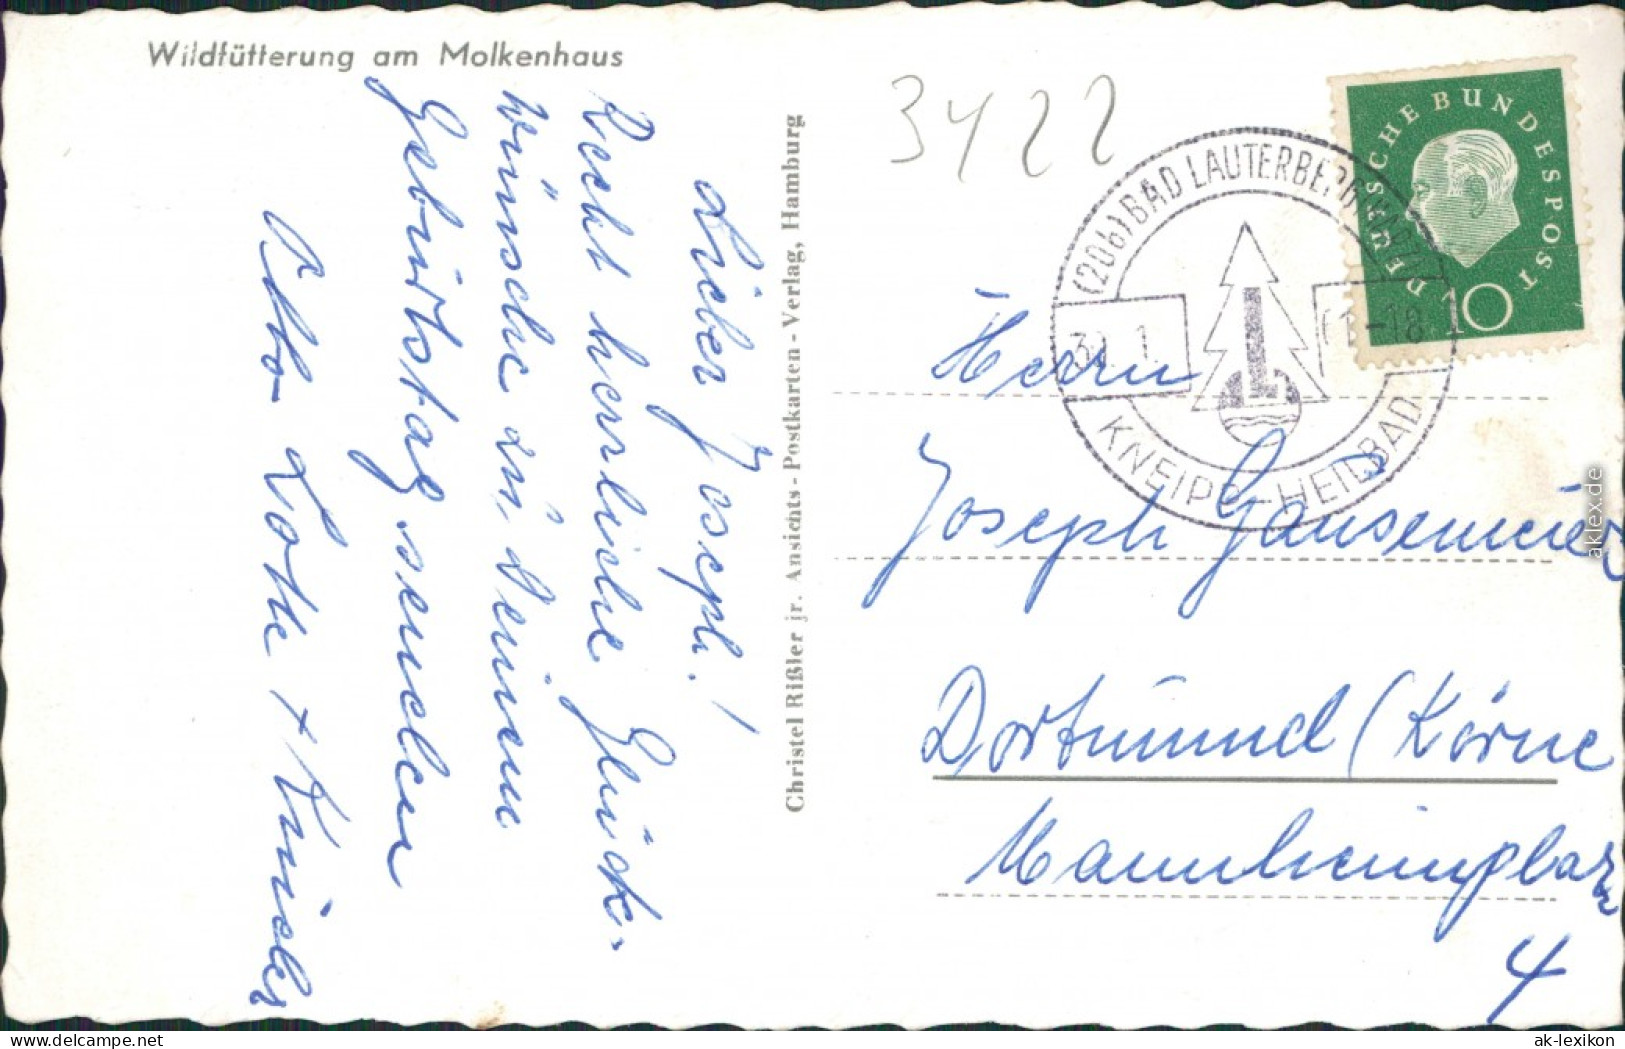 Wildfütterung am Molkenhaus
Lieber Joseph!
Recht herzliche Glück-
wünsche zu Deinem
Geburtstag senden
Otto Lotte + Kinder
Christel Rißler jr. Ansichts-Postkarten-Verlag, Hamburg
3422
(20b) BAD LAUTERBERG (HARZ)
KNEIPP-HEILBAD
DEUTSCHE BUNDESPOST
10
Herrn
Joseph Gausemeier
Dortmund (Körne
Mannheimplatz
4
aklex.de
www.delcampe.net
ak-lexikon